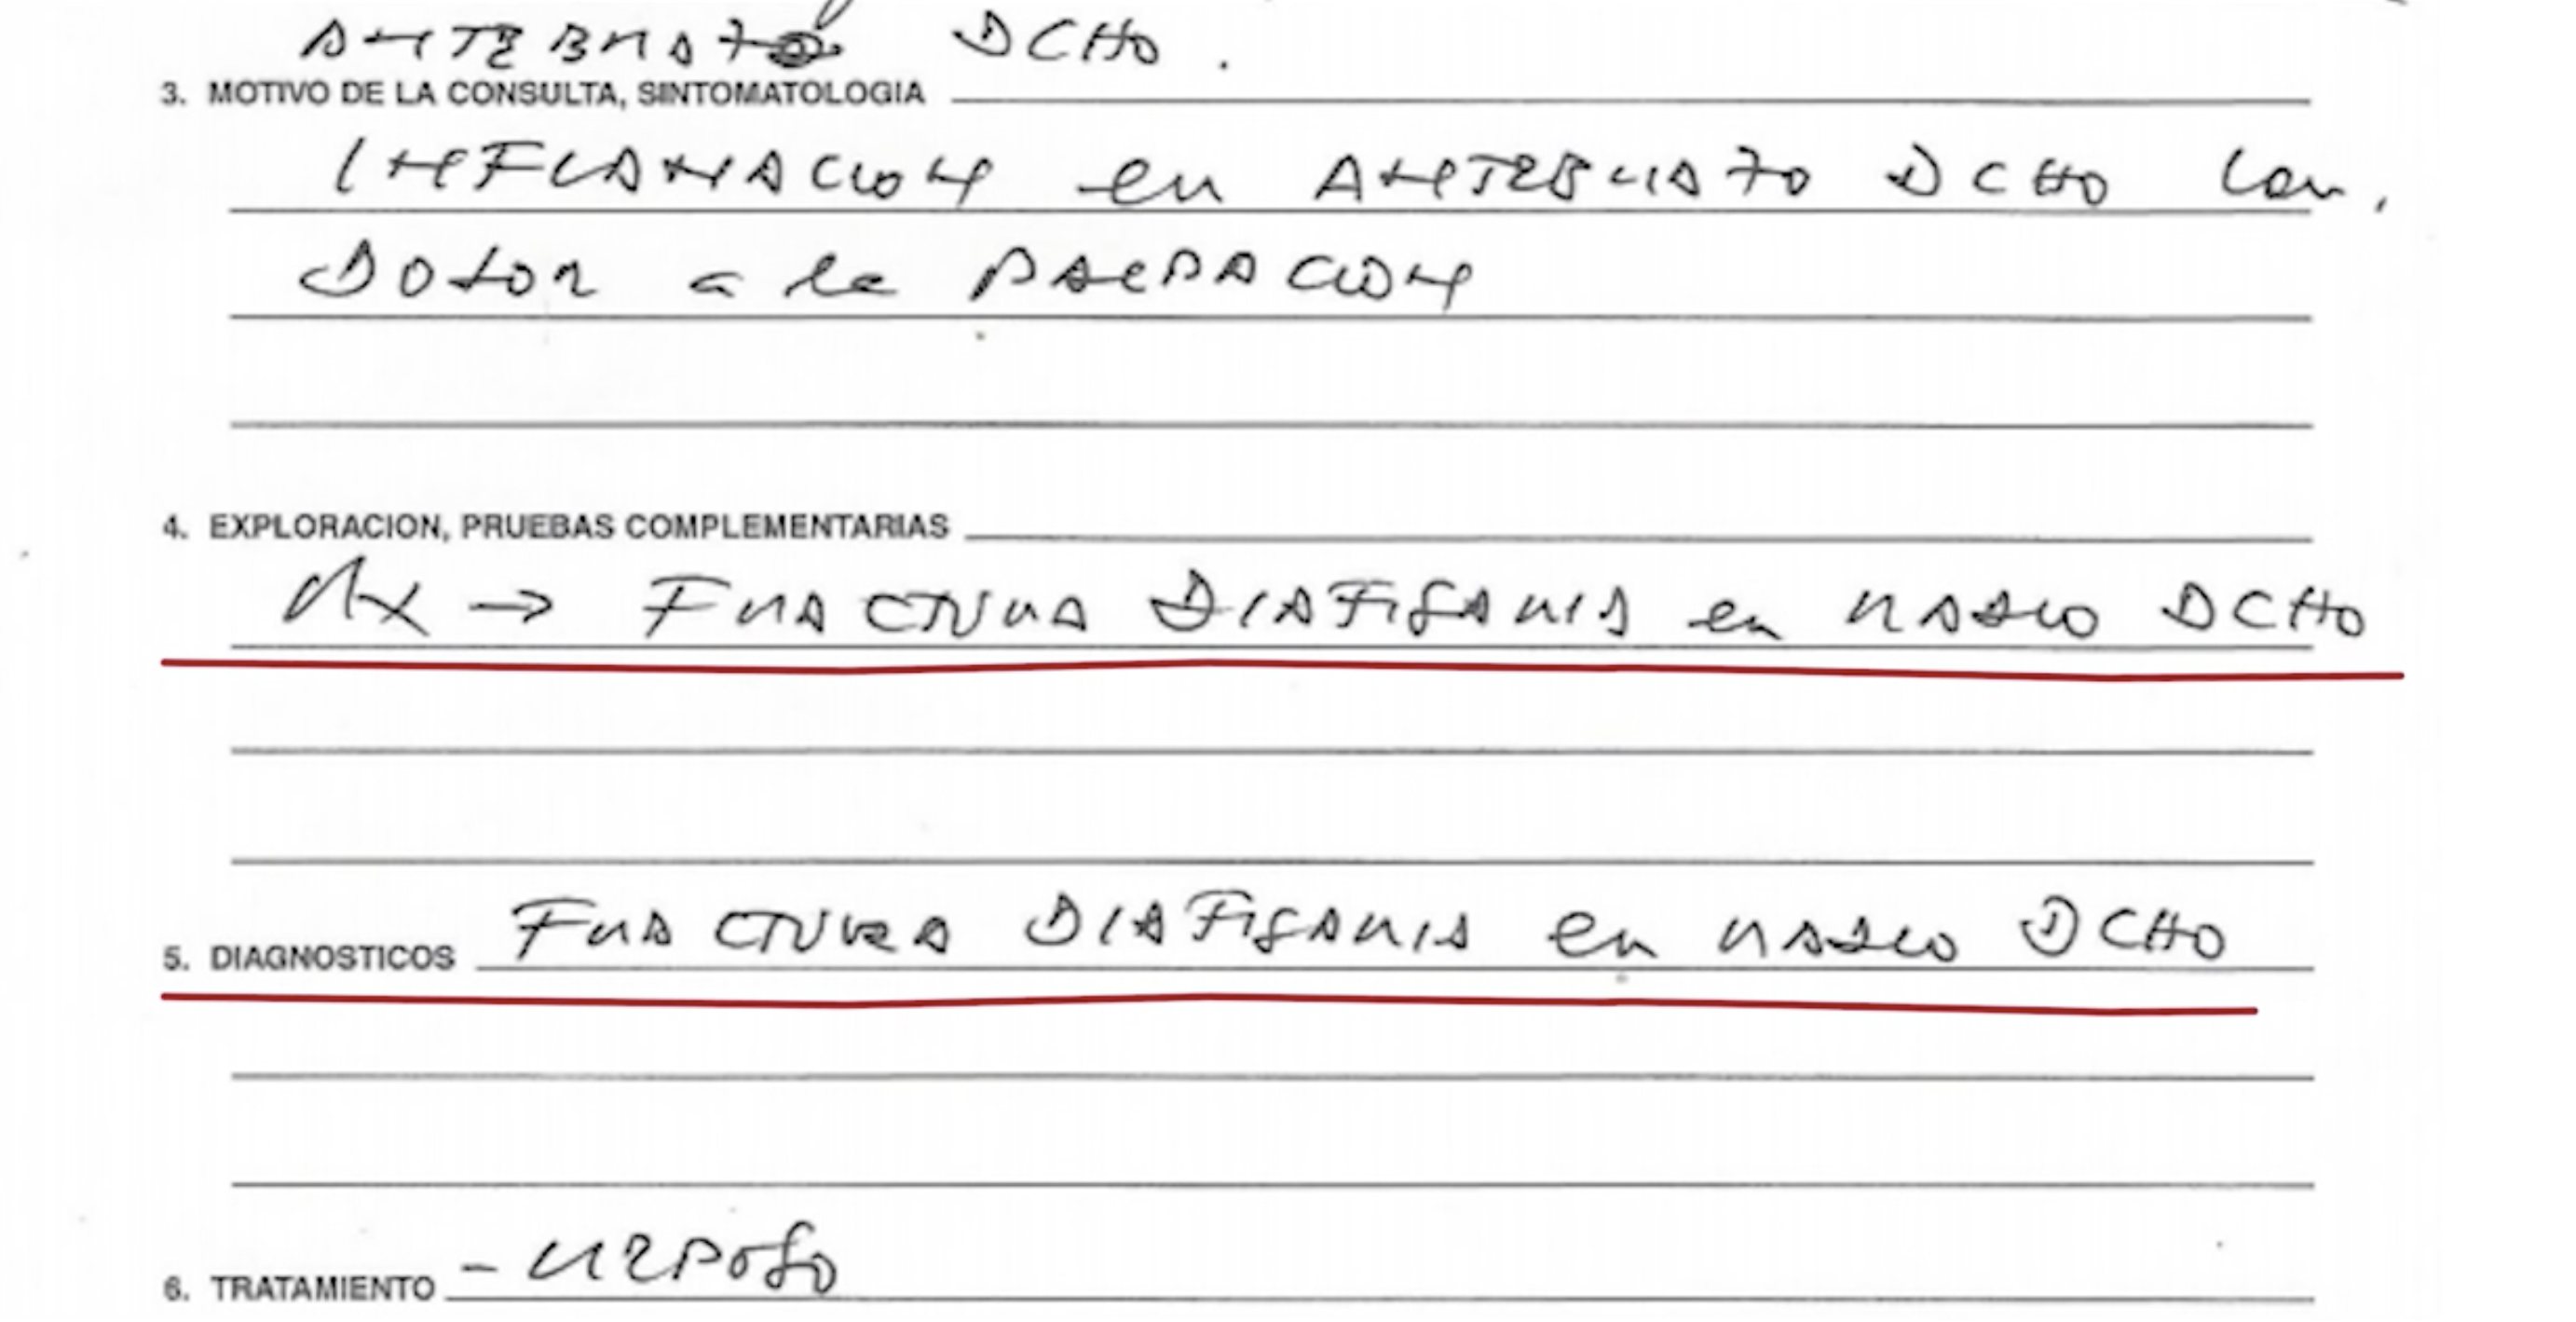 ANTEBRAZO DCHO.
3. MOTIVO DE LA CONSULTA, SINTOMATOLOGIA
INFLAMACION en ANTEBRAZO DCHO con
DOLOR a la PALPACION
4. EXPLORACION, PRUEBAS COMPLEMENTARIAS
RX → FRACTURA DIAFISARIA en RADIO DCHO
5. DIAGNOSTICOS FRACTURA DIAFISARIA en RADIO DCHO
6. TRATAMIENTO - REPOSO